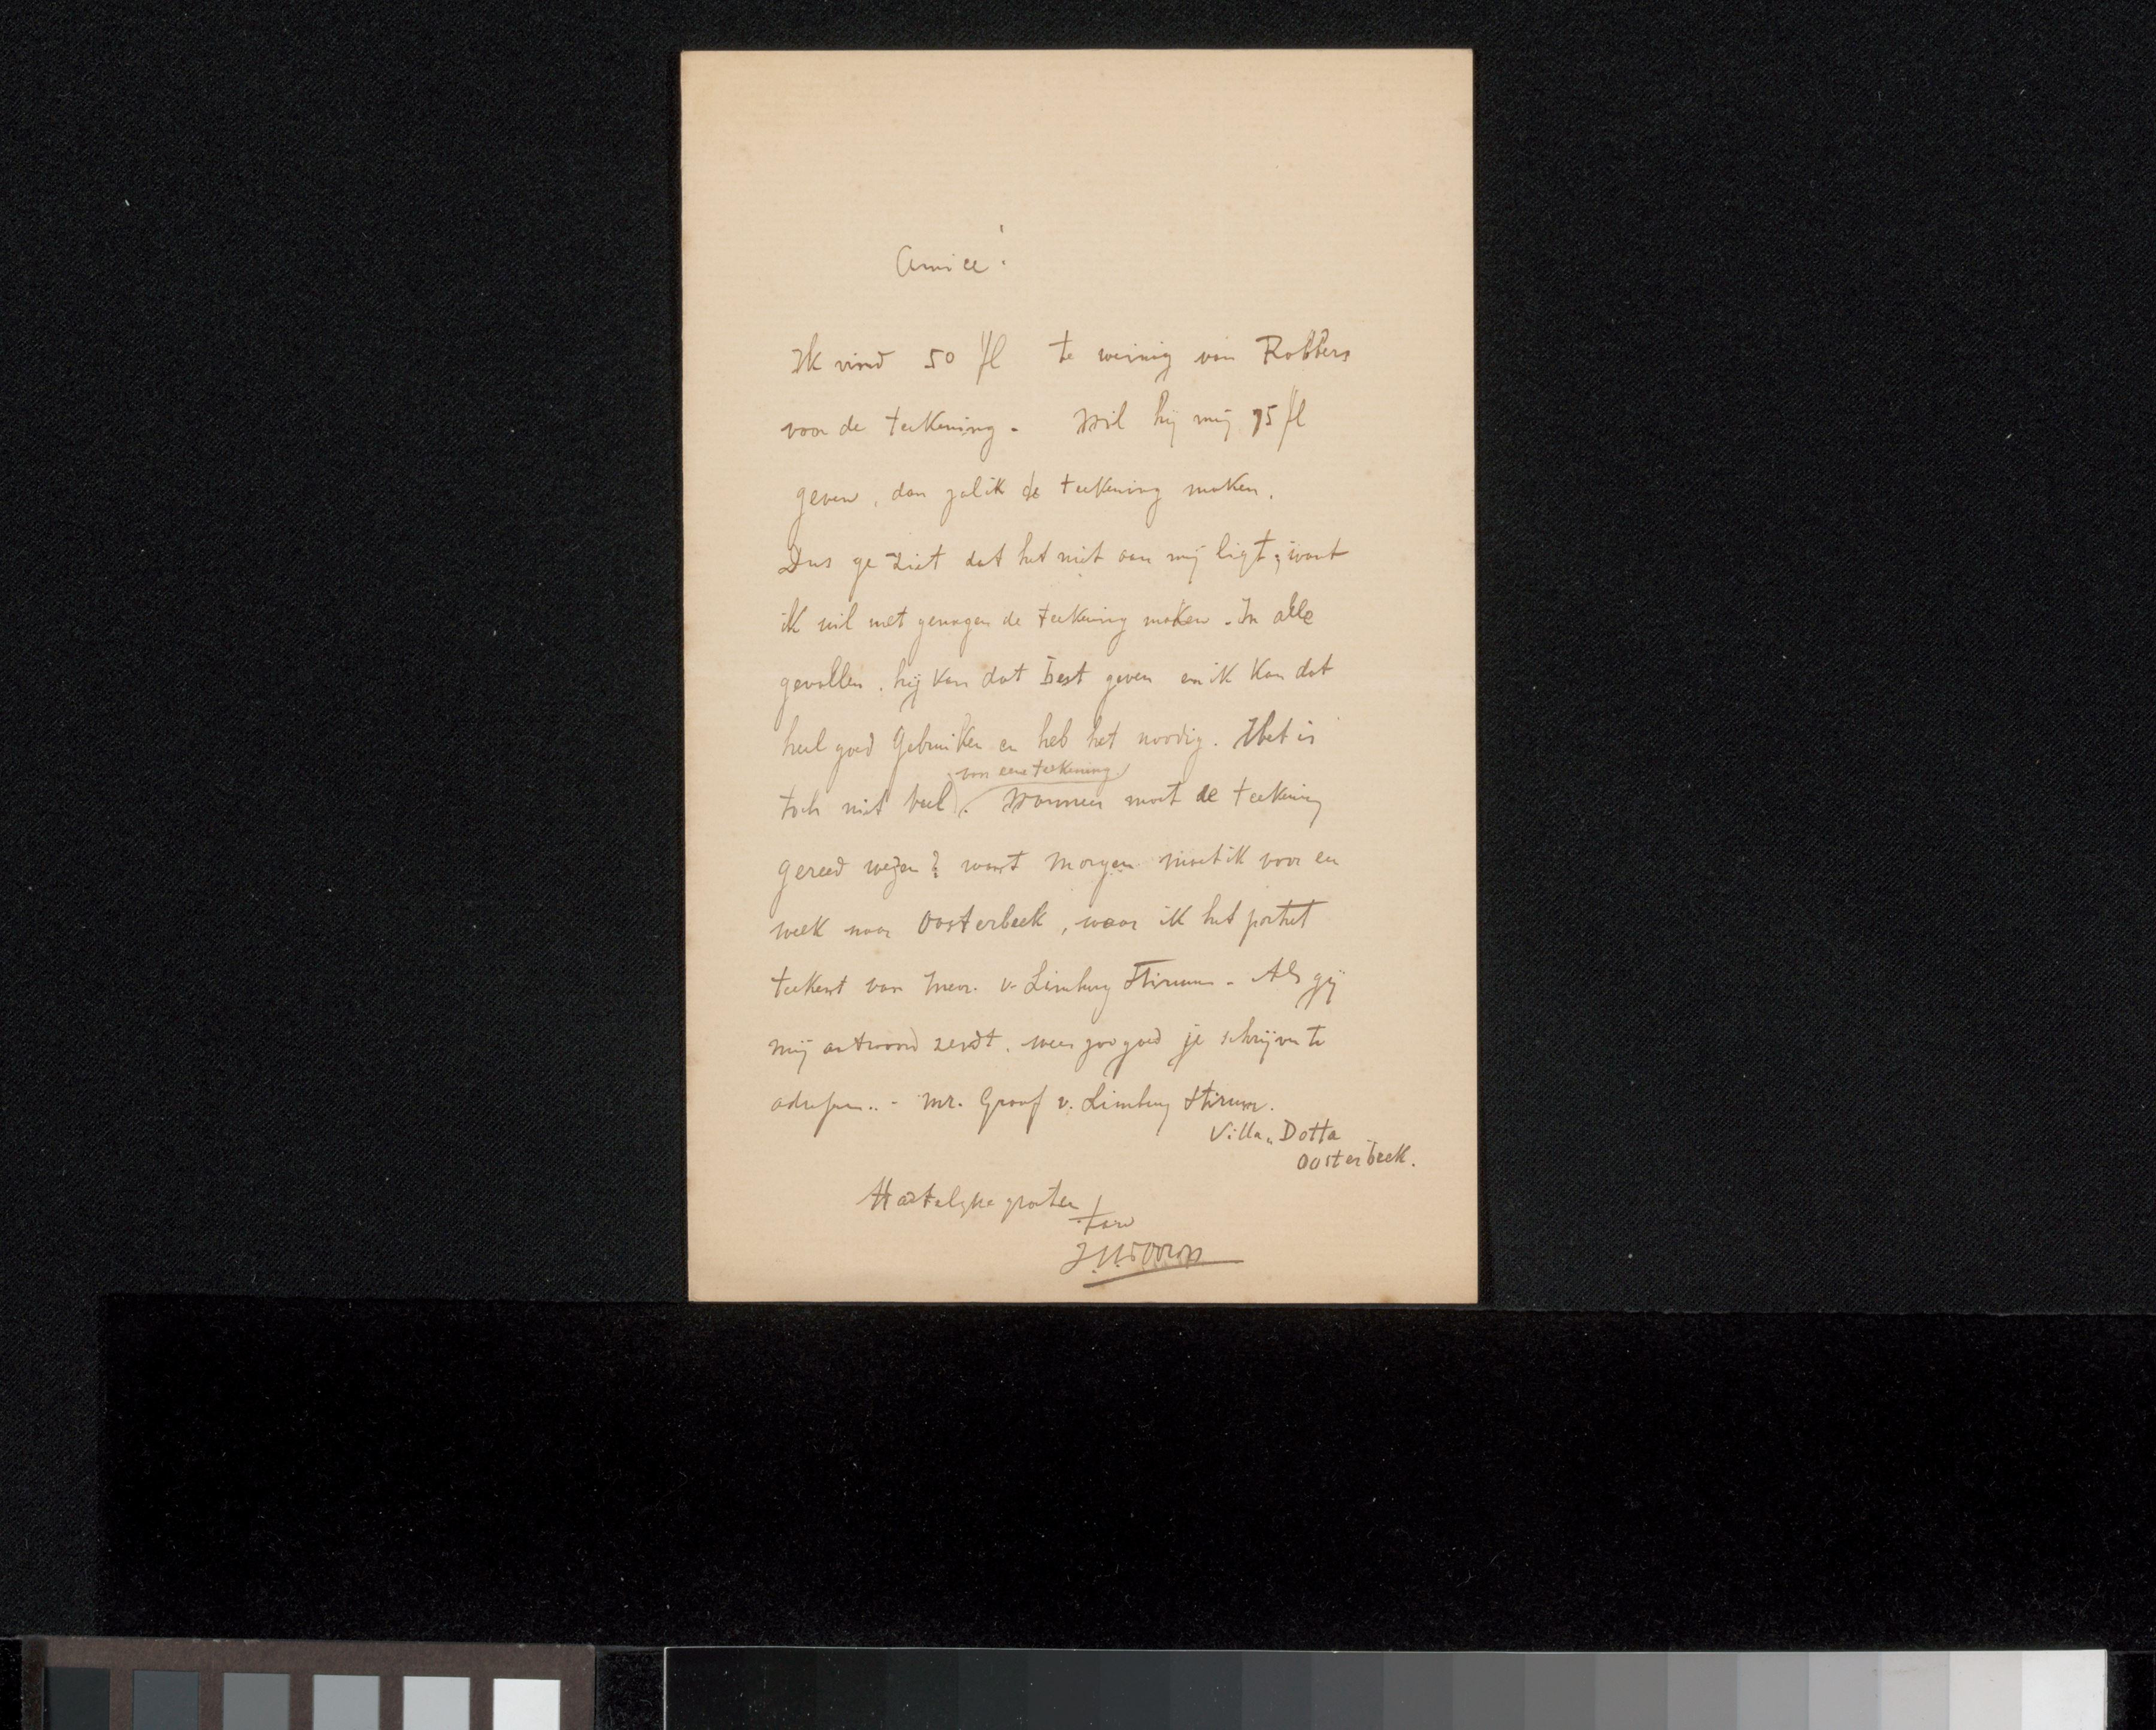 Amice!
Ik vind 50 fl te weinig van Robbers
voor de teekening. Wil hij mij 75 fl
geven, dan zal ik de teekening maken.
Dus ge ziet dat het niet aan mij ligt, want
ik wil met genoegen de teekening maken. In alle
gevallen, hij kan dat best geven en ik kan dat
heel goed gebruiken en heb het noodig. Het is
voor eene teekening
toch niet veel. Wanneer moet de teekening
gereed wezen? want morgen moet ik voor en
week naar Oosterbeek, waar ik het portret
teekent van Mevr. v. Limburg Stirum. Als gij
mij antwoord zendt, wees zoo goed je schrijven te
adressen.. - Mr. Graaf v. Limburg Stirum.
Villa „Dotta
Oosterbeek.
Hartelijke groeten
t.av
J.Th.Toorop